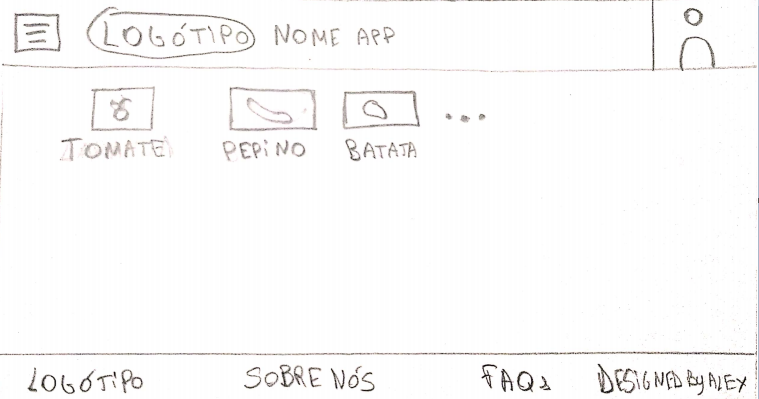 LOGÓTIPO NOME APP
TOMATE PEPINO BATATA ...
LOGÓTIPO SOBRE NÓS FAQs DESIGNED By ALEX